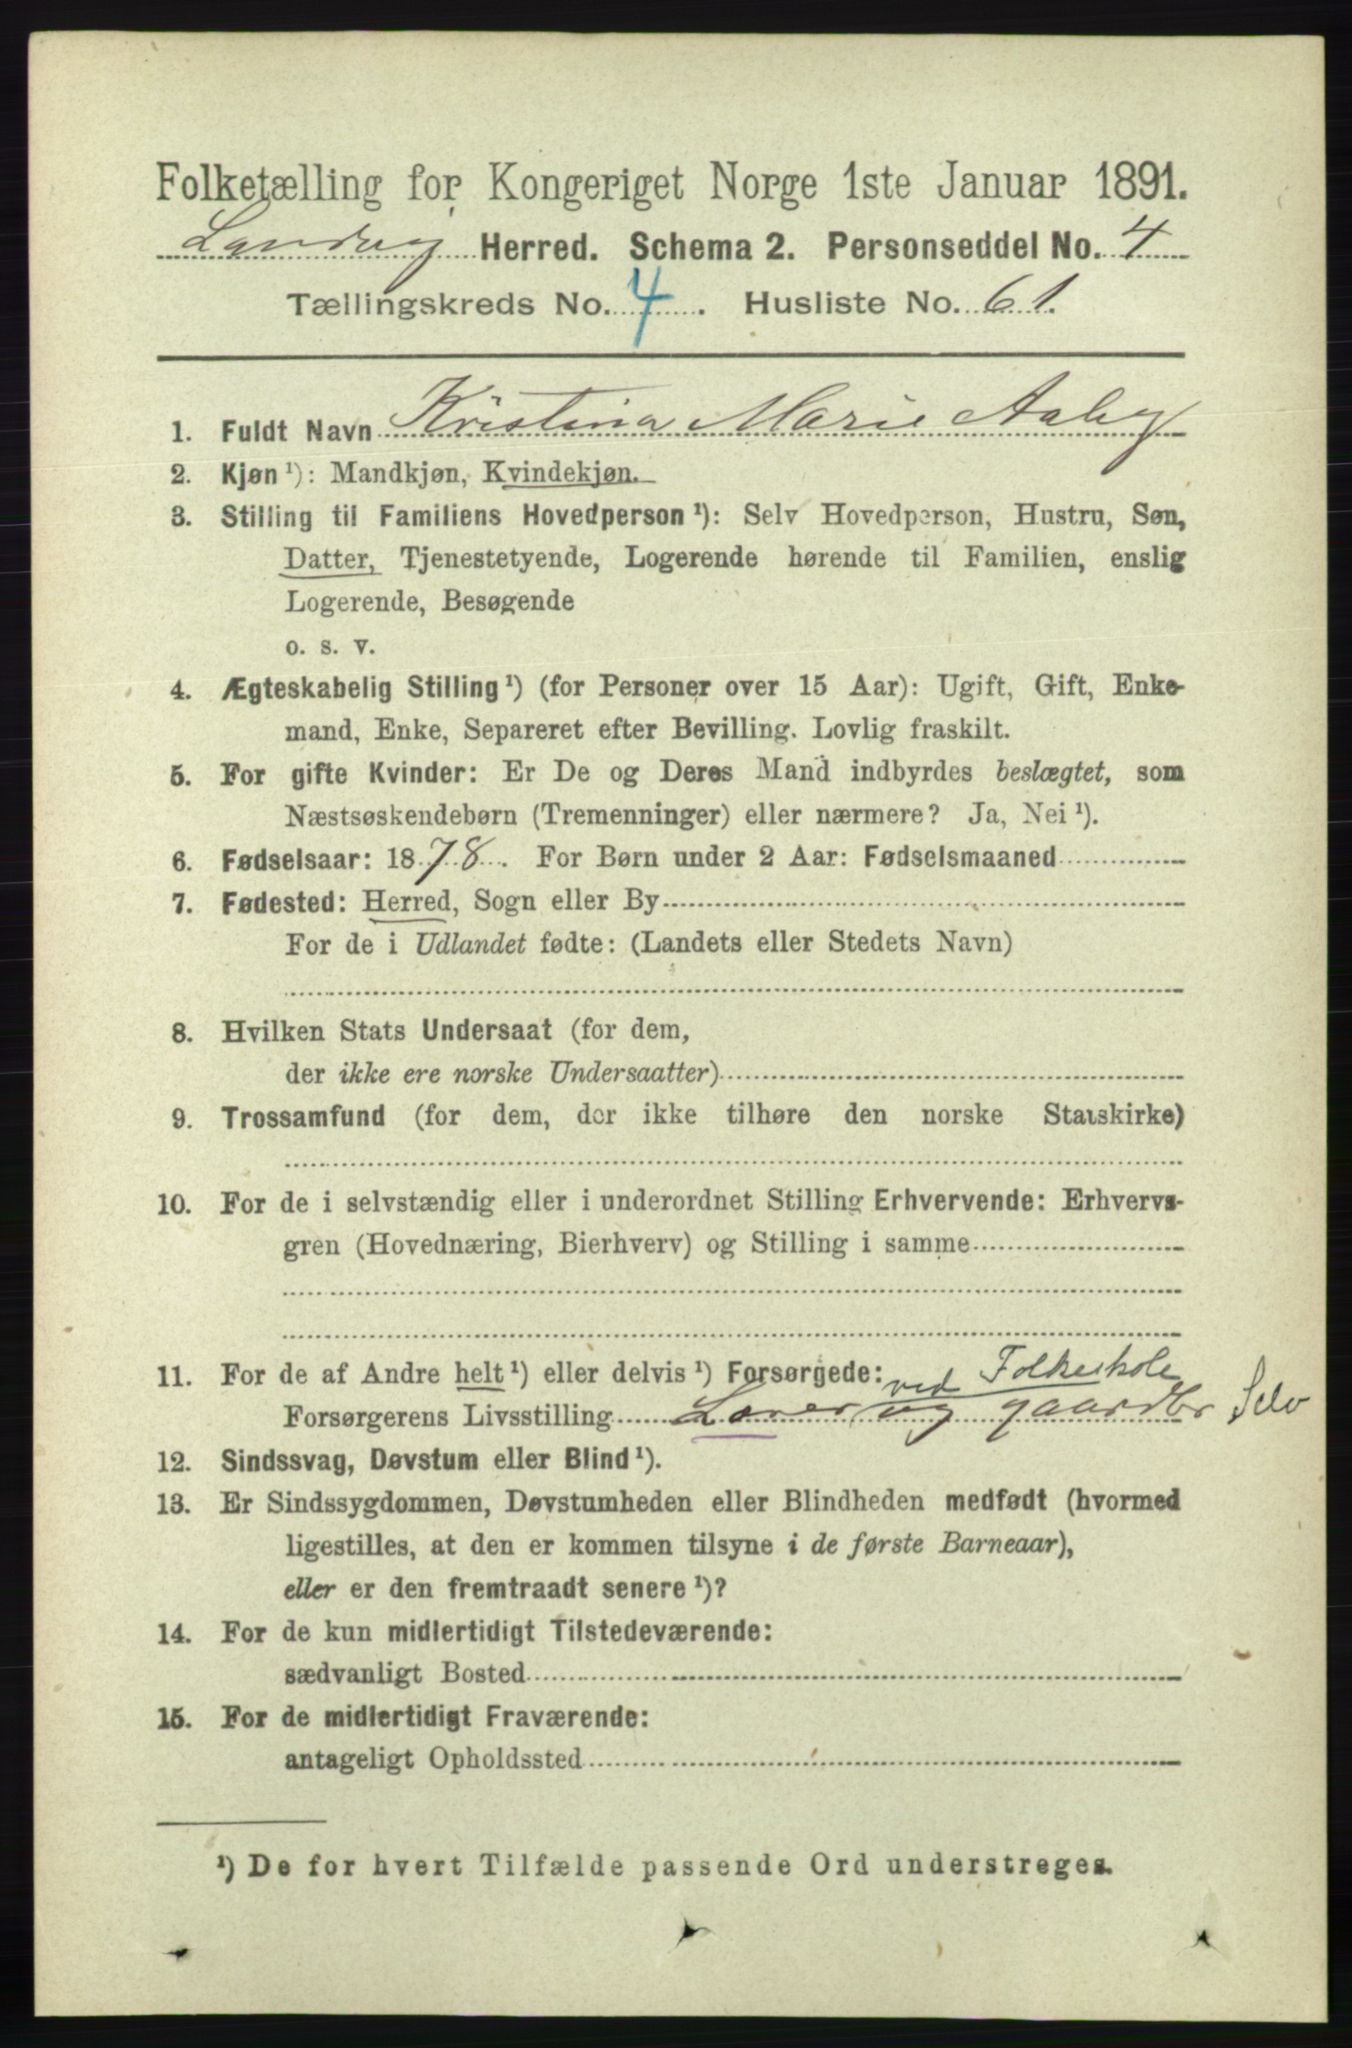 Folketælling for Kongeriget Norge 1ste Januar 1891.
Landvig Herred. Schema 2. Personseddel No. 4
Tællingskreds No. 4. Husliste No. 61.
1. Fuldt Navn Kristina Marie Aaby
2. Kjøn ¹): Mandkjøn, Kvindekjøn.
3. Stilling til Familiens Hovedperson ¹): Selv Hovedperson, Hustru, Søn,
Datter, Tjenestetyende, Logerende hørende til Familien, enslig
Logerende, Besøgende
o. s. v.
4. Ægteskabelig Stilling ¹) (for Personer over 15 Aar): Ugift, Gift, Enke-
mand, Enke, Separeret efter Bevilling. Lovlig fraskilt.
5. For gifte Kvinder: Er De og Deres Mand indbyrdes beslægtet, som
Næstsøskendebørn (Tremenninger) eller nærmere? Ja, Nei ¹).
6. Fødselsaar: 1878. For Børn under 2 Aar: Fødselsmaaned
7. Fødested: Herred, Sogn eller By
For de i Udlandet fødte: (Landets eller Stedets Navn)
8. Hvilken Stats Undersaat (for dem,
der ikke ere norske Undersaatter)
9. Trossamfund (for dem, der ikke tilhøre den norske Statskirke)
10. For de i selvstændig eller i underordnet Stilling Erhvervende: Erhvervs-
gren (Hovednæring, Bierhverv) og Stilling i samme
11. For de af Andre helt ¹) eller delvis ¹) Forsørgede: ved Folkeskole
Forsørgerens Livsstilling Lærer og gaardbr Selv
12. Sindssvag, Døvstum eller Blind ¹).
13. Er Sindssygdommen, Døvstumheden eller Blindheden medfødt (hvormed
ligestilles, at den er kommen tilsyne i de første Barneaar),
eller er den fremtraadt senere ¹)?
14. For de kun midlertidigt Tilstedeværende:
sædvanligt Bosted
15. For de midlertidigt Fraværende:
antageligt Opholdssted
¹) De for hvert Tilfælde passende Ord understreges.